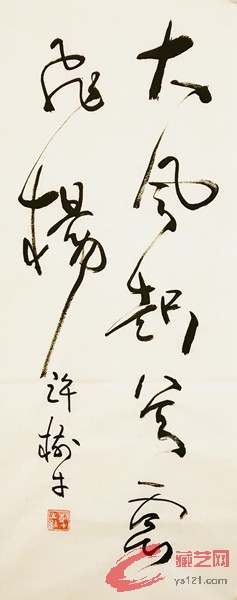 大风起兮云
飞扬
许榆才
藏艺网
ys121.com